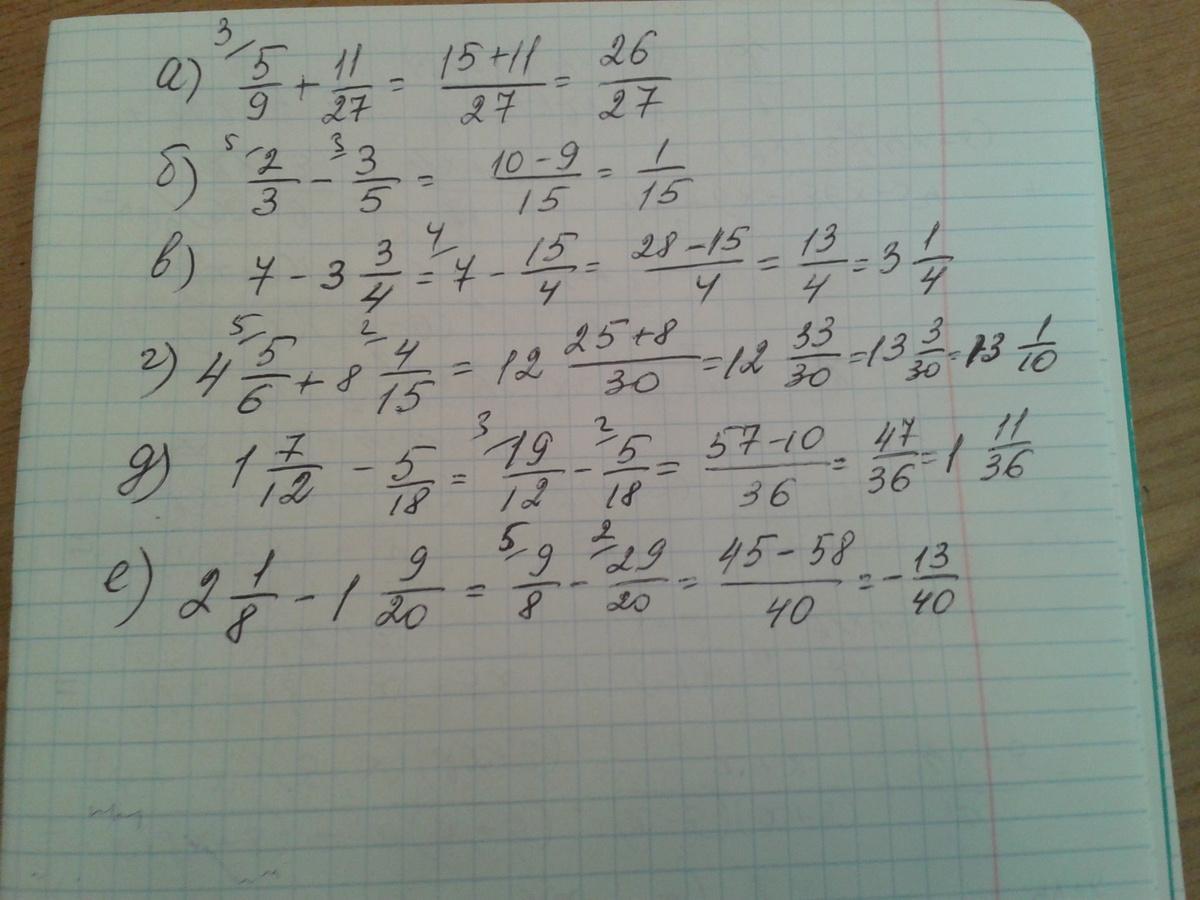 а) 3/ 5/9 + 11/27 = (15+11)/27 = 26/27
б) 5/ 2/3 - 3/ 3/5 = (10-9)/15 = 1/15
в) 7 - 3 3/4 = 4/ 7 - 15/4 = (28-15)/4 = 13/4 = 3 1/4
г) 4 5/ 5/6 + 8 2/ 4/15 = 12 (25+8)/30 = 12 33/30 = 13 3/30 = 13 1/10
д) 1 7/12 - 5/18 = 3/ 19/12 - 2/ 5/18 = (57-10)/36 = 47/36 = 1 11/36
е) 2 1/8 - 1 9/20 = 5/ 9/8 - 2/ 29/20 = (45-58)/40 = -13/40